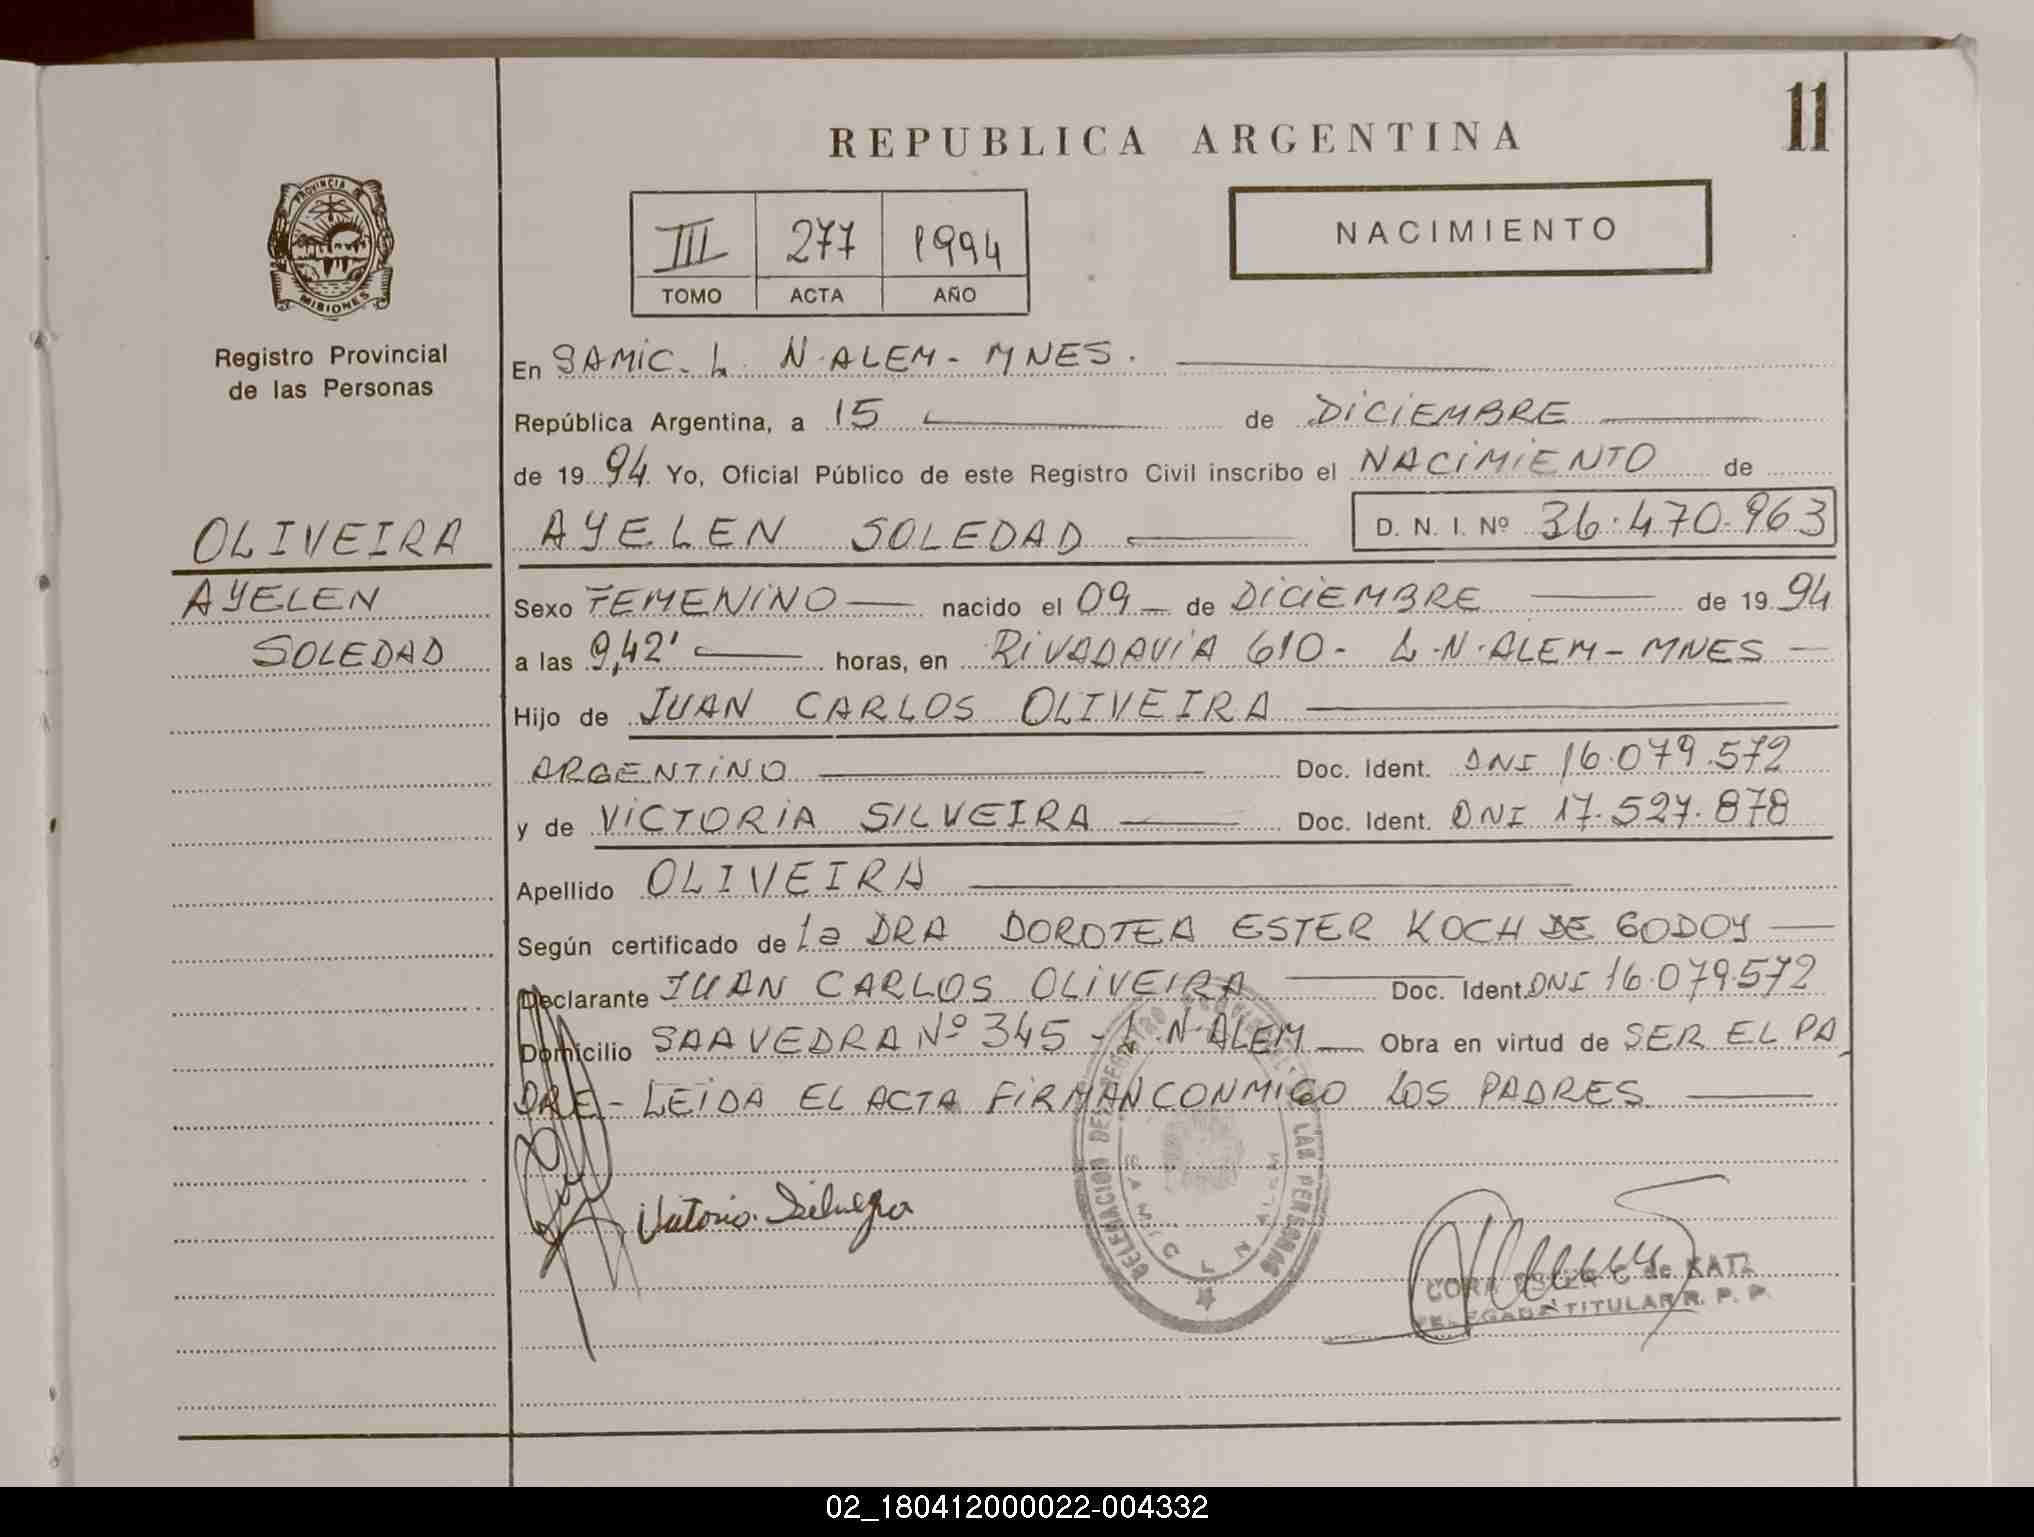 REPUBLICA ARGENTINA
11
PROVINCIA DE
MISIONES
Registro Provincial
de las Personas
III 277 1994
TOMO ACTA AÑO
NACIMIENTO
En SAMIC. L. N. ALEM - MNES.
República Argentina, a 15 de DICIEMBRE
de 19 94. Yo, Oficial Público de este Registro Civil inscribo el NACIMIENTO de
OLIVEIRA
AYELEN SOLEDAD D. N. I. Nº 36.470.963
AYELEN
Sexo FEMENINO nacido el 09 de DICIEMBRE de 19 94
SOLEDAD
a las 9,42' horas, en RIVADAVIA 610 - L.N. ALEM - MNES
Hijo de JUAN CARLOS OLIVEIRA
ARGENTINO Doc. Ident. DNI 16.079.572
y de VICTORIA SILVEIRA Doc. Ident. DNI 17.527.878
Apellido OLIVEIRA
Según certificado de La DRA DOROTEA ESTER KOCH DE GODOY
Declarante JUAN CARLOS OLIVEIRA Doc. Ident. DNI 16.079.572
Domicilio SAAVEDRA Nº 345 - L.N. ALEM Obra en virtud de SER EL PA
DRE - LEIDA EL ACTA FIRMAN CONMIGO LOS PADRES
DELEGACION DEL REGISTRO LAS PERSONAS
L N ALEM
DELEGADA TITULAR R. P. P.
02_180412000022-004332